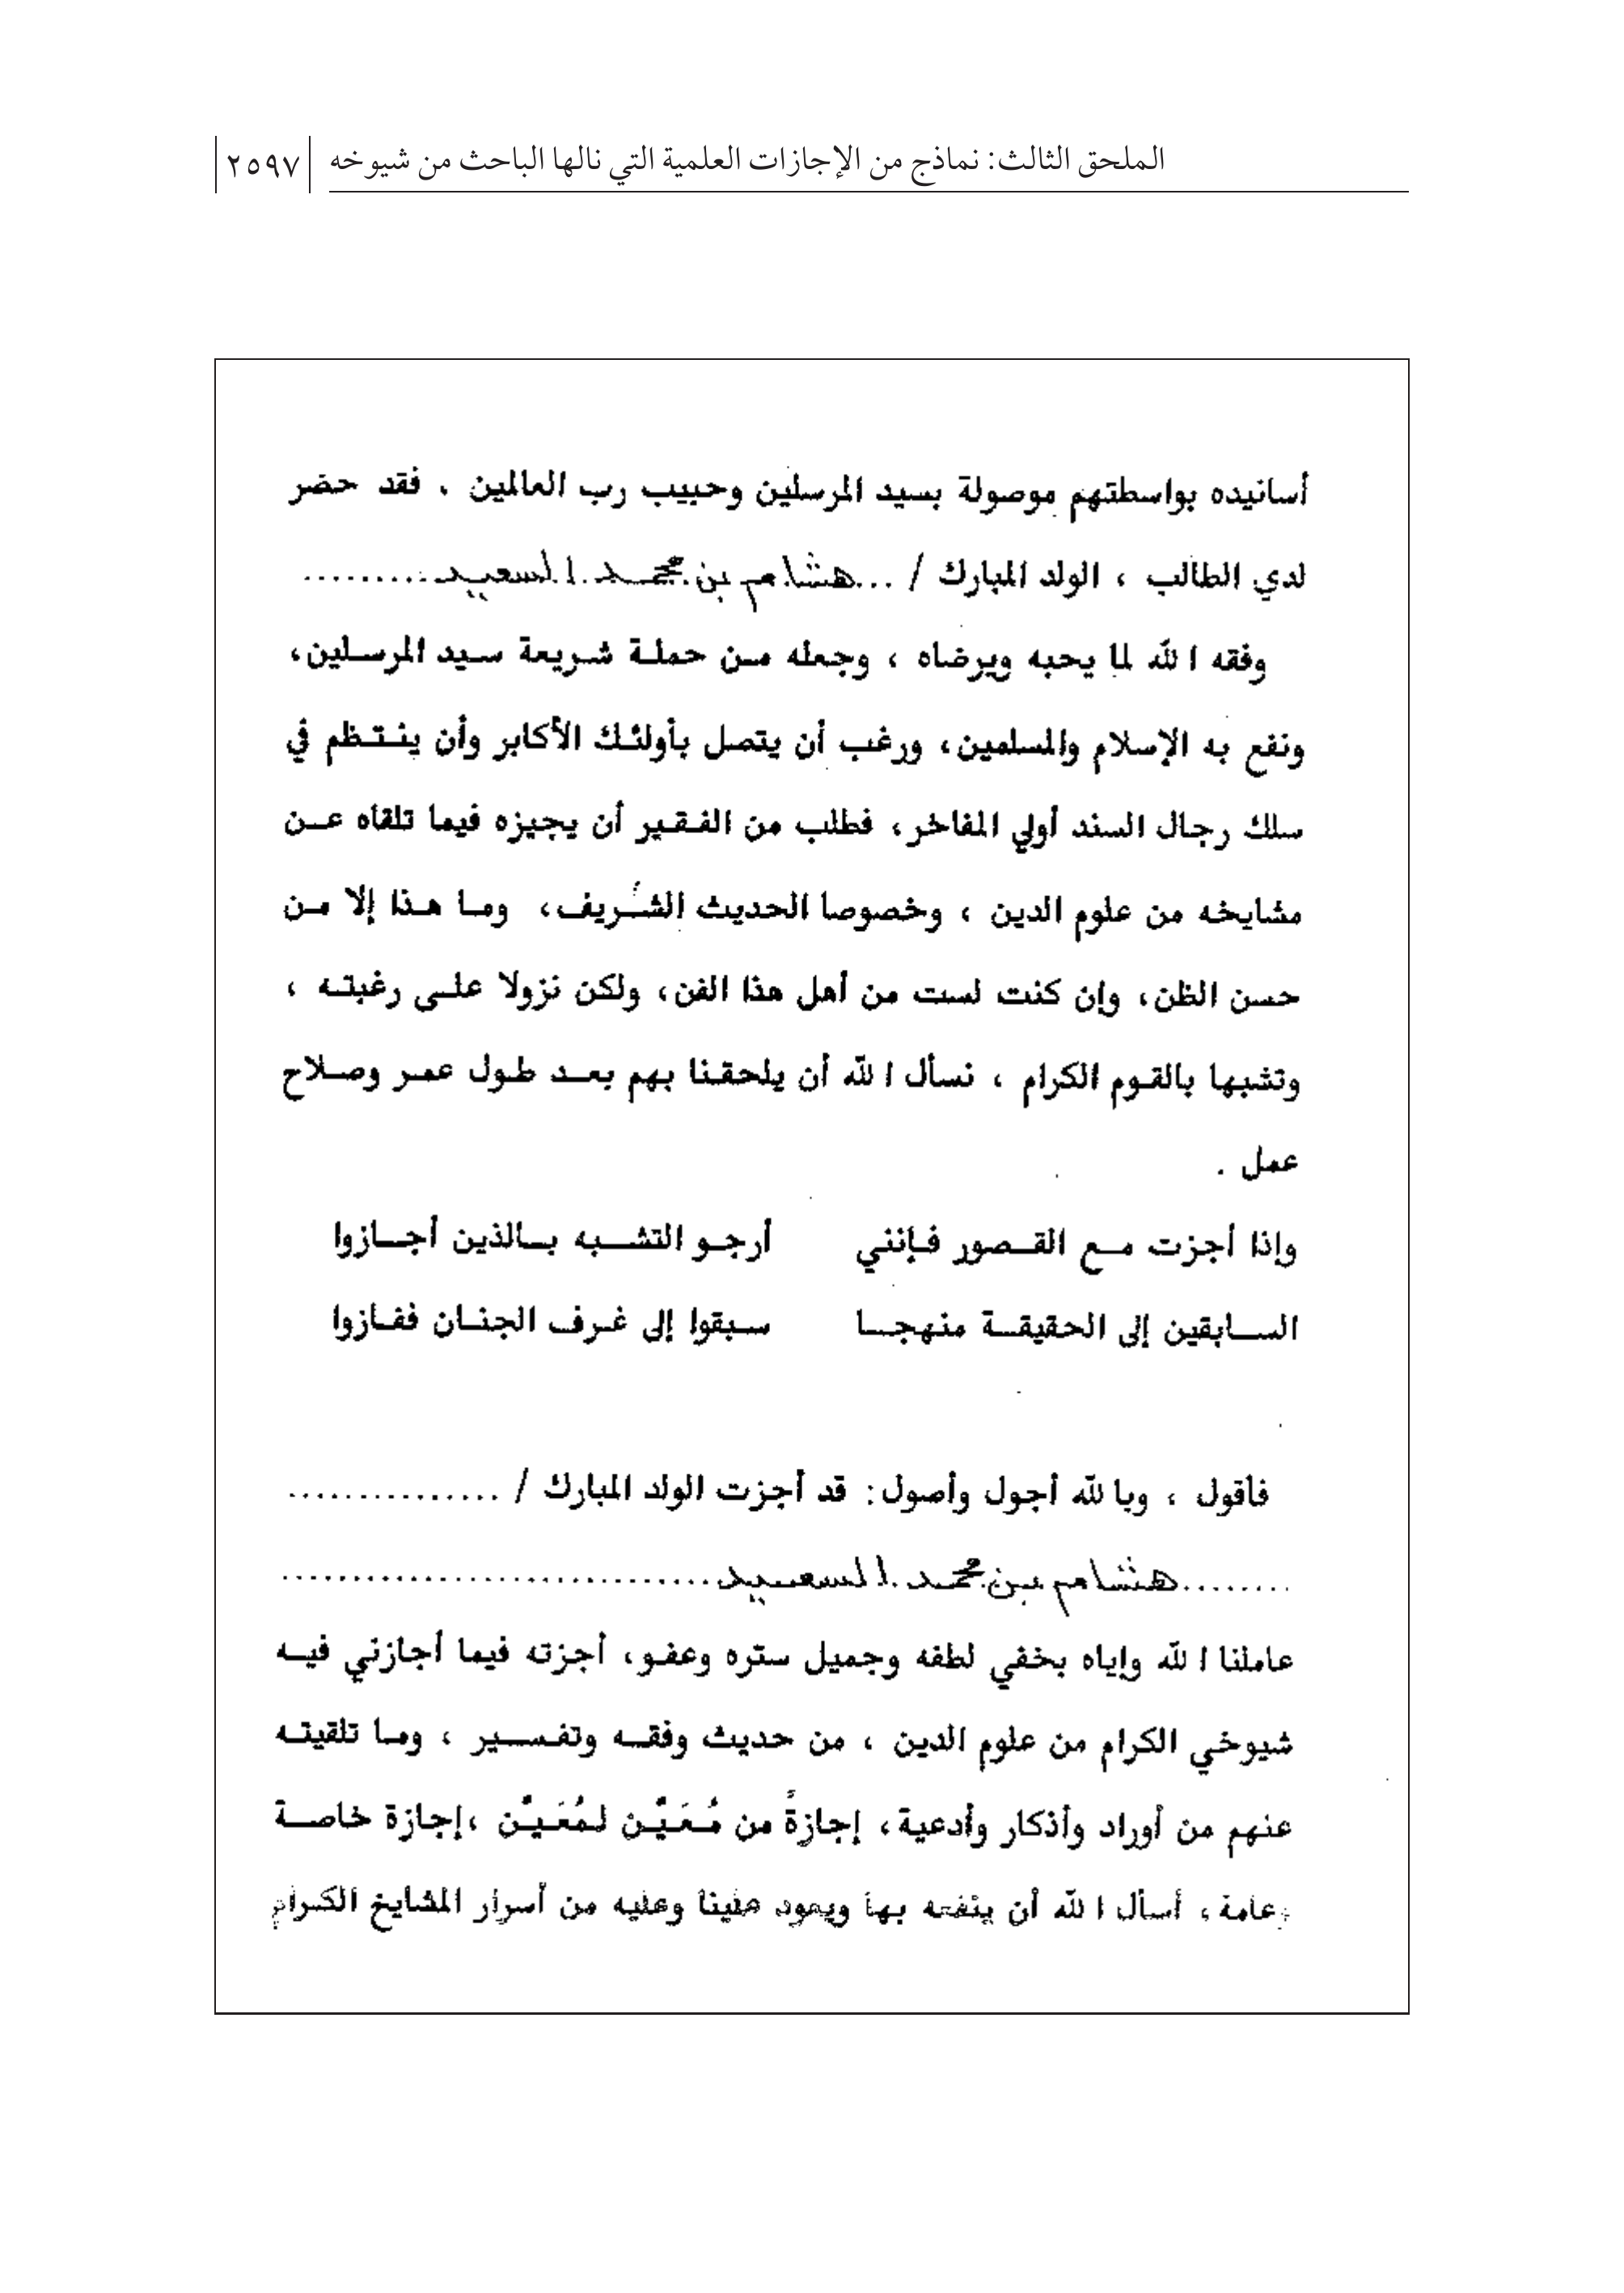 الملحق الثالث: نماذج من الإجازات العلمية التي نالها الباحث من شيوخه ٢٥٩٧
أسانيده بواسطتهم موصولة بسيد المرسلين وحبيب رب العالمين . فقد حضر
لدي الطالب ، الولد المبارك / ...هشام بن محمد السعيد..........
وفقه الله لما يحبه ويرضاه ، وجعله من حملة شريعة سيد المرسلين،
ونفع به الإسلام والمسلمين، ورغب أن يتصل بأولئك الأكابر وأن ينتظم في
سلك رجال السند أولي المفاخر، فطلب من الفقير أن يجيزه فيما تلقاه عن
مشايخه من علوم الدين ، وخصوصا الحديث الشريف، وما هذا إلا من
حسن الظن، وإن كنت لست من أهل هذا الفن، ولكن نزولا على رغبته ،
وتشبها بالقوم الكرام ، نسأل الله أن يلحقنا بهم بعد طول عمر وصلاح
عمل .
وإذا أجزت مع القصور فإنني أرجو التشبه بالذين أجازوا
السابقين إلى الحقيقة منهجا سبقوا إلى غرف الجنان ففازوا
فأقول ، وبالله أجول وأصول: قد أجزت الولد المبارك / ...............
........هشام بن محمد السعيد...............................
عاملنا الله وإياه بخفي لطفه وجميل ستره وعفو، أجزته فيما أجازني فيه
شيوخي الكرام من علوم الدين ، من حديث وفقه وتفسير ، وما تلقيته
عنهم من أوراد وأذكار وأدعية، إجازةً من مُعَيَّن لمُعَيَّن ،إجازة خاصة
وعامة، أسأل الله أن ينفعه بها ويعود علينا وعليه من أسرار المشايخ الكرام